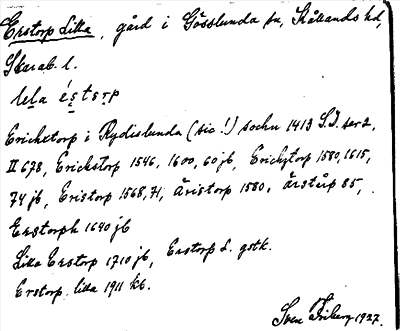 Erstorp Lilla, gård i Gösslunda sn, Kållands hd,
Skarab. l.
lɩla ẹ́ṣtɒrp
Erichxtorp i Rydislunda (sic!) sochn 1413 S.D. ser 2,
II 678, Erickstorp 1546, 1600, 60 jb, Erichztorp 1580, 1615,
74 jb, Eristorp 1568, 71, Äristorp 1580, Ärstårp 85,
Erstorph 1640 jb
Lilla Erstorp 1710 jb, Erstorp L. gstk.
Erstorp, lilla 1911 kb.
Sven Friberg 1927.